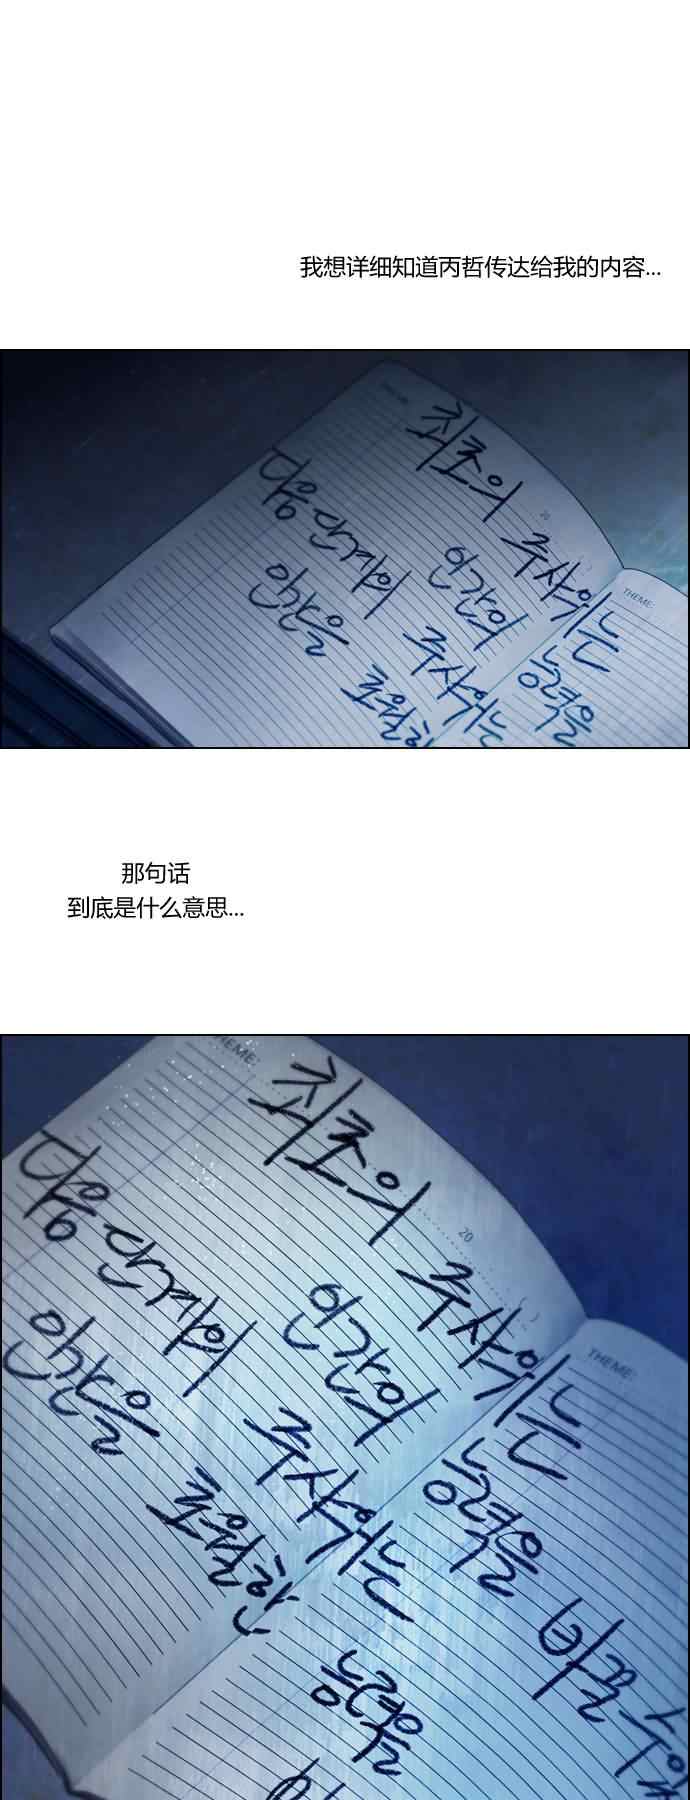 我想详细知道丙哲传达给我的内容...
최초의 주사위는
인간의 능력을
다음 단계의 주사위는
인간을 초월한
20
THEME:
那句话
到底是什么意思...
THEME:
최초의 주사위는
인간의 능력을 바꿀 수 있
다음 단계의 주사위는
인간을 초월한 능력을
20
THEME: